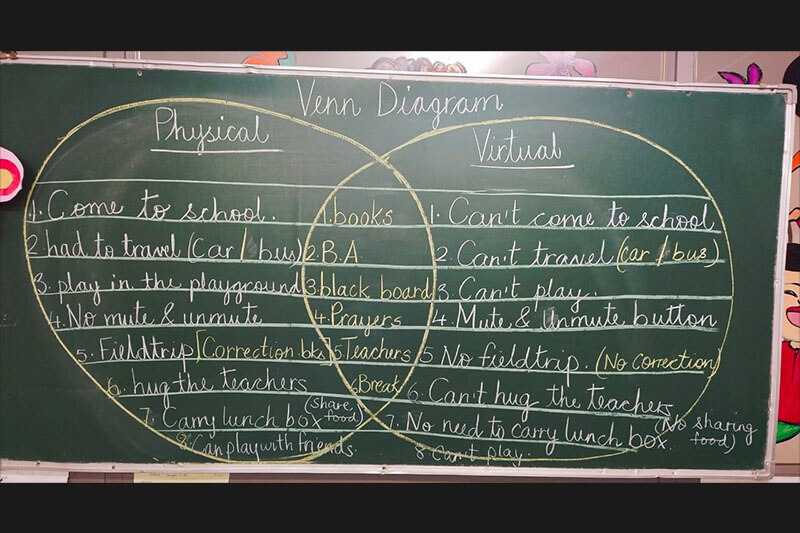 Venn Diagram
Physical
1. Come to school.
2 had to travel (Car / bus)
3. play in the playground
4. No mute & unmute
5. Fieldtrip [Correction bks]
6. hug the teachers
7. Carry lunch box (share food)
8. Can play with friends.
1. books
2. B.A.
3. black board
4. Prayers
5 Teachers
6 Break
Virtual
1. Can't come to school
2. Can't travel (car / bus)
3. Can't play.
4. Mute & Unmute button
5 No fieldtrip. (No correction)
6. Can't hug the teachers
7. No need to carry lunch box. (No sharing food)
8. Can't play.